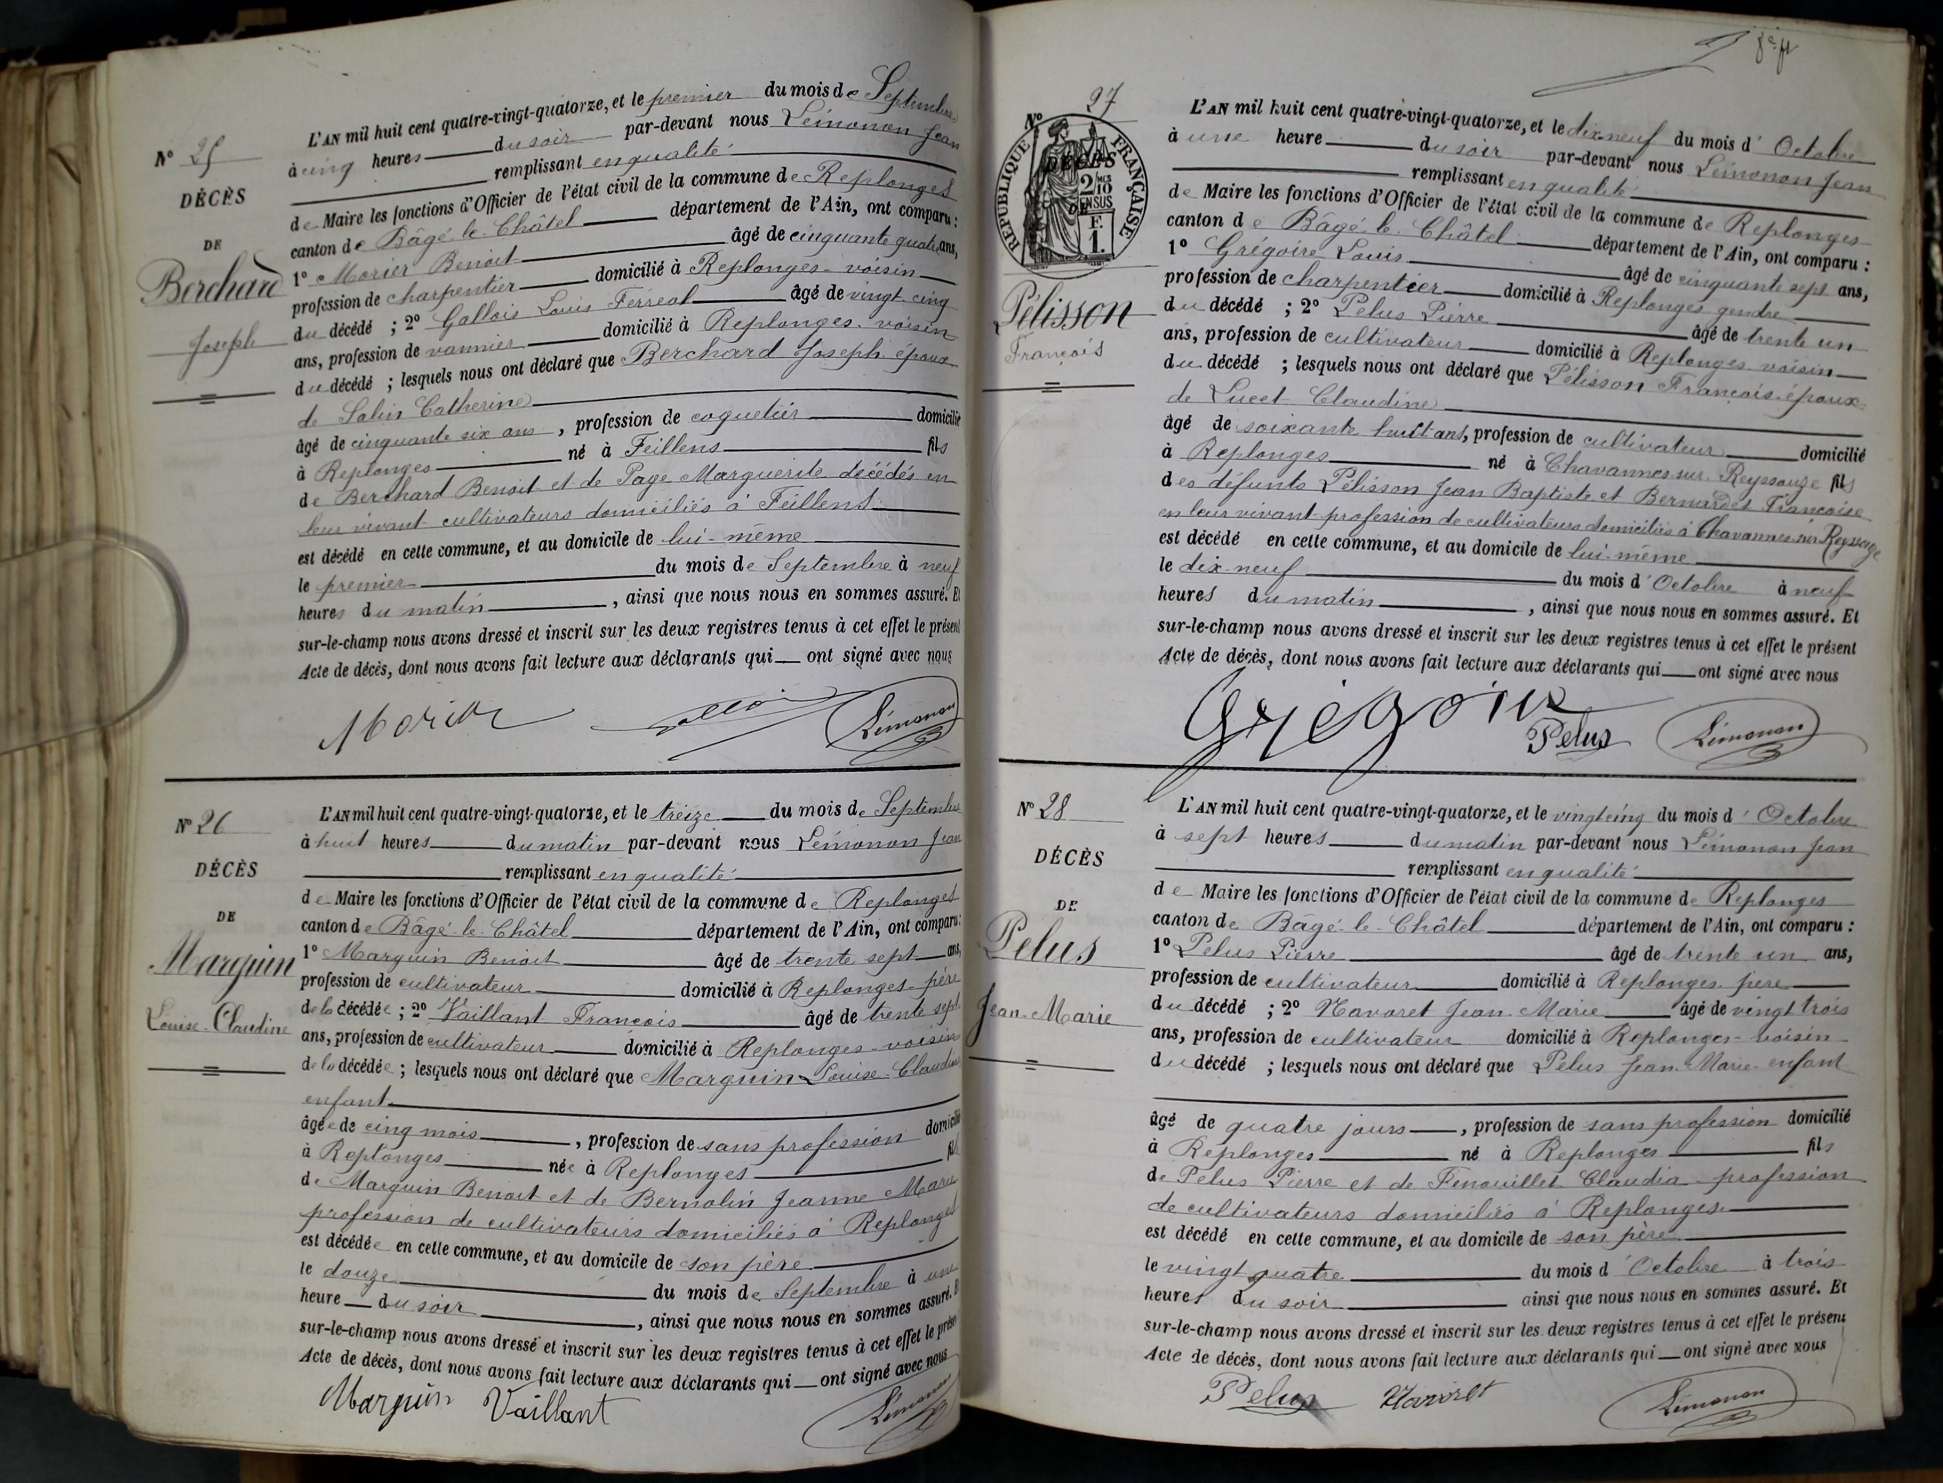 N° 25
DÉCÈS
DE
Berchard
Joseph
L'AN mil huit cent quatre-vingt-quatorze, et le premier du mois de Septembre
à cinq heures du soir par-devant nous Lémonon Jean
remplissant en qualité
de Maire les fonctions d'Officier de l'état civil de la commune de Replonges
canton de Bâgé-le-Châtel département de l'Ain, ont comparu :
1° Morier Benoit âgé de cinquante quatre ans,
profession de charpentier domicilié à Replonges - voisin
du décédé ; 2° Gallois Louis Ferréol âgé de vingt cinq
ans, profession de vannier domicilié à Replonges - voisin
du décédé ; lesquels nous ont déclaré que Berchard Joseph époux
de Salin Catherine
âgé de cinquante six ans, profession de coquetier domicilié
à Replonges né à Feillens fils
de Berchard Benoit et de Page Marguerite décédés en
leur vivant cultivateurs domiciliés à Feillens
est décédé en cette commune, et au domicile de lui-même
le premier du mois de Septembre à neuf
heures du matin, ainsi que nous nous en sommes assuré. Et
sur-le-champ nous avons dressé et inscrit sur les deux registres tenus à cet effet le présent
Acte de décès, dont nous avons fait lecture aux déclarants qui ont signé avec nous
Morier Lémonon
N° 26
DÉCÈS
DE
Marguin
Louise-Claudine
L'AN mil huit cent quatre-vingt-quatorze, et le treize du mois de Septembre
à huit heures du matin par-devant nous Lémonon Jean
remplissant en qualité
de Maire les fonctions d'Officier de l'état civil de la commune de Replonges
canton de Bâgé-le-Châtel département de l'Ain, ont comparu :
1° Marguin Benoit âgé de trente sept ans,
profession de cultivateur domicilié à Replonges - père
de la décédée ; 2° Vaillant François âgé de trente sept
ans, profession de cultivateur domicilié à Replonges - voisin
de la décédée ; lesquels nous ont déclaré que Marguin Louise-Claudine
enfant
âgée de cinq mois, profession de sans profession domicilié
à Replonges née à Replonges fil
de Marguin Benoit et de Bernolin Jeanne Marie
profession de cultivateurs domiciliés à Replonges
est décédée en cette commune, et au domicile de son père
le douze du mois de Septembre à une
heure du soir, ainsi que nous nous en sommes assuré. Et
sur-le-champ nous avons dressé et inscrit sur les deux registres tenus à cet effet le présent
Acte de décès, dont nous avons fait lecture aux déclarants qui ont signé avec nous
Marguin Vaillant Lémonon
N° 27
RÉPUBLIQUE FRANÇAISE
DÉCÈS
2/10 MES
EN SUS
DE
F.
1.
Pélisson
François
L'AN mil huit cent quatre-vingt-quatorze, et le dix-neuf du mois d'Octobre
à une heure du soir par-devant nous Lémonon Jean
remplissant en qualité
de Maire les fonctions d'Officier de l'état civil de la commune de Replonges
canton de Bâgé-le-Châtel département de l'Ain, ont comparu :
1° Grégoire Louis âgé de cinquante sept ans,
profession de charpentier domicilié à Replonges gendre
du décédé ; 2° Pelus Pierre âgé de trente un
ans, profession de cultivateur domicilié à Replonges voisin
du décédé ; lesquels nous ont déclaré que Pélisson François époux
de Lucet Claudine
âgé de soixante huit ans, profession de cultivateur domicilié
à Replonges né à Chavannes sur Reyssouze fils
des défunts Pélisson Jean Baptiste et Bernardet Françoise
en leur vivant profession de cultivateurs domiciliés à Chavannes sur Reyssouze
est décédé en cette commune, et au domicile de lui-même
le dix-neuf du mois d'Octobre à neuf
heures du matin, ainsi que nous nous en sommes assuré. Et
sur-le-champ nous avons dressé et inscrit sur les deux registres tenus à cet effet le présent
Acte de décès, dont nous avons fait lecture aux déclarants qui ont signé avec nous
Grégoire Pelus Lémonon
N° 28
DÉCÈS
DE
Pelus
Jean-Marie
L'AN mil huit cent quatre-vingt-quatorze, et le vingt cinq du mois d'Octobre
à sept heures du matin par-devant nous Lémonon Jean
remplissant en qualité
de Maire les fonctions d'Officier de l'état civil de la commune de Replonges
canton de Bâgé-le-Châtel département de l'Ain, ont comparu :
1° Pelus Pierre âgé de trente un ans,
profession de cultivateur domicilié à Replonges père
du décédé ; 2° Navoret Jean-Marie âgé de vingt trois
ans, profession de cultivateur domicilié à Replonges - voisin
du décédé ; lesquels nous ont déclaré que Pelus Jean-Marie enfant
âgé de quatre jours, profession de sans profession domicilié
à Replonges né à Replonges fils
de Pelus Pierre et de Fenouillet Claudia profession
de cultivateurs domiciliés à Replonges
est décédé en cette commune, et au domicile de son père
le vingt quatre du mois d'Octobre à trois
heures du soir ainsi que nous nous en sommes assuré. Et
sur-le-champ nous avons dressé et inscrit sur les deux registres tenus à cet effet le présent
Acte de décès, dont nous avons fait lecture aux déclarants qui ont signé avec nous
Pelus Navoret Lémonon